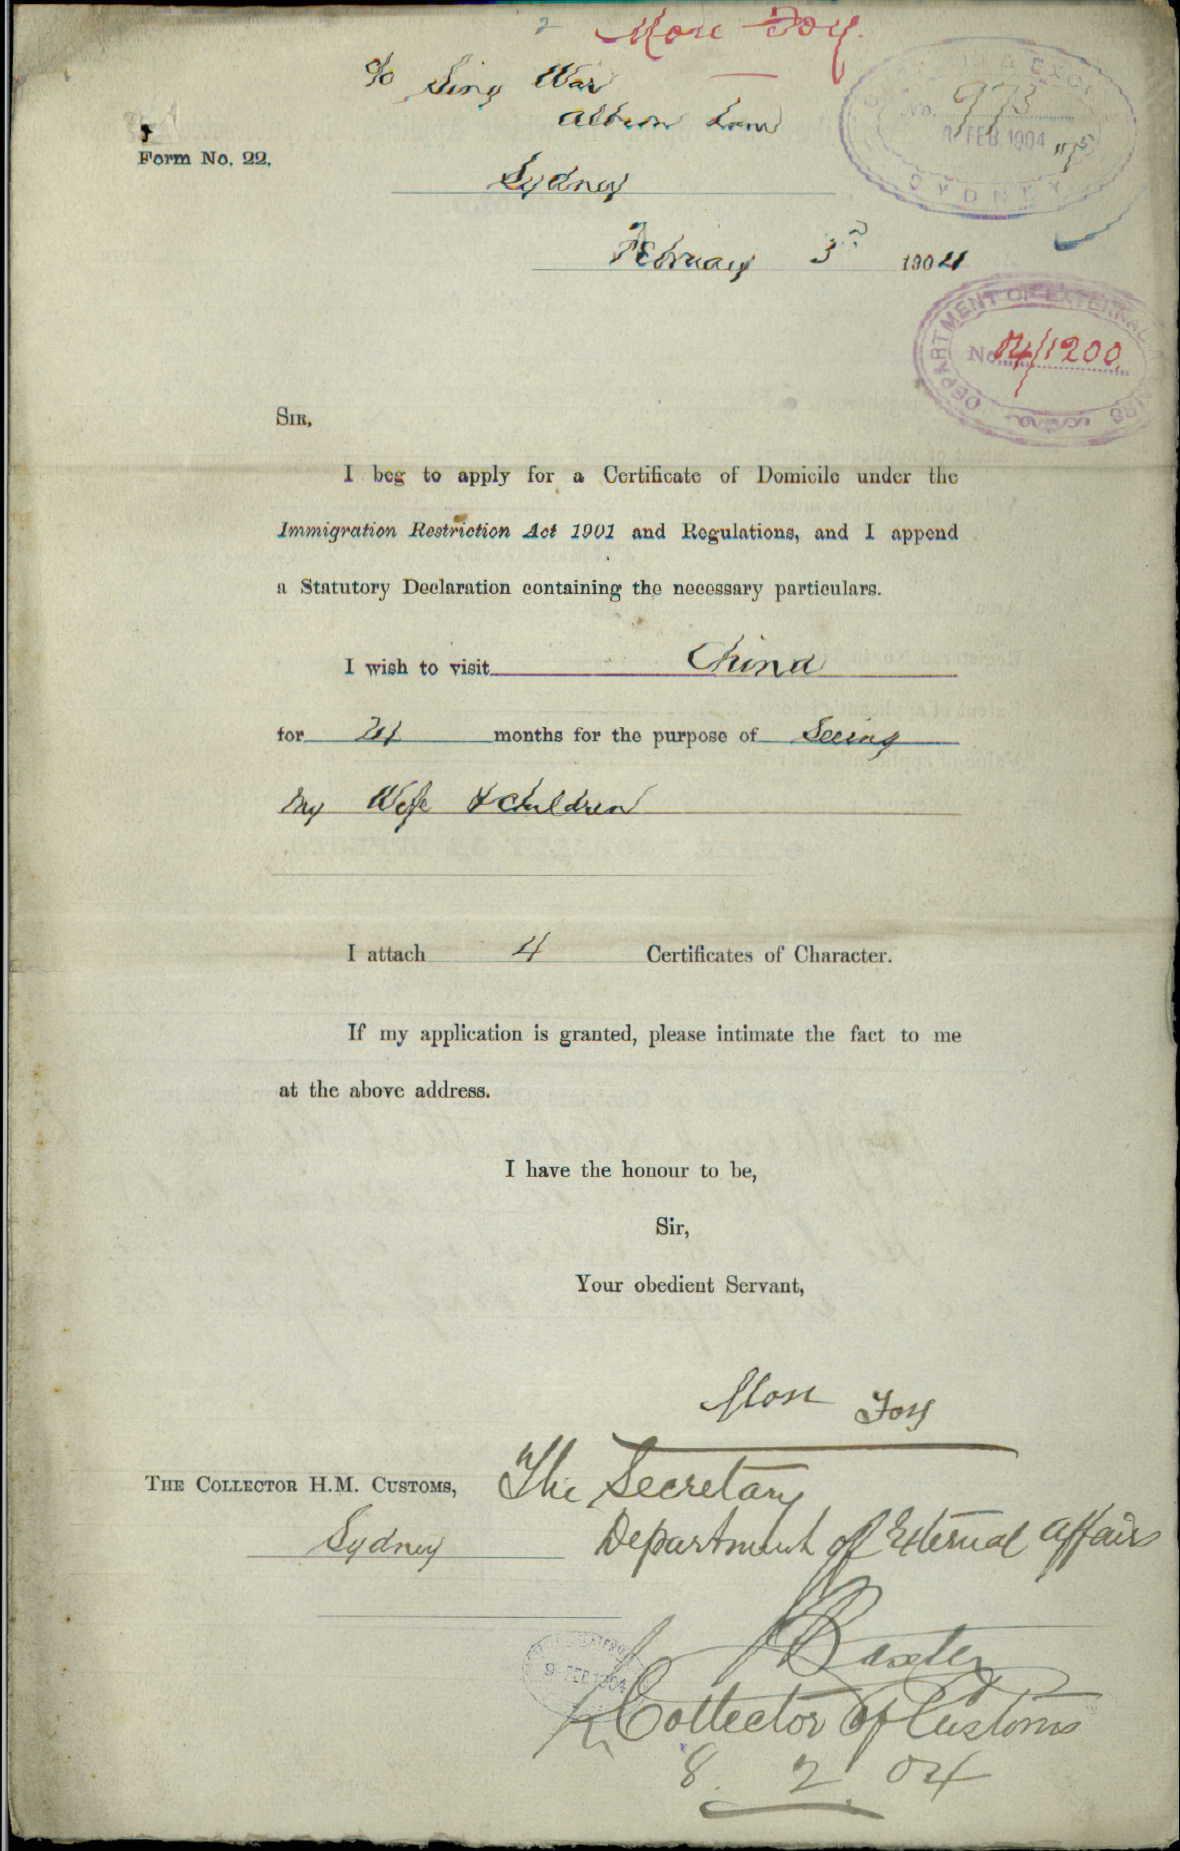 2
Mow Foy.
C/o Sing War
Albion Lane
No. 973
FEB. 1904
SYDNEY
Form No. 22.
Sydney
February 3rd 1904
DEPARTMENT OF EXTERNAL AFFAIRS
No. 04/1200
SIR,
I beg to apply for a Certificate of Domicile under the
Immigration Restriction Act 1901 and Regulations, and I append
a Statutory Declaration containing the necessary particulars.
I wish to visit China
for 24 months for the purpose of Seeing
my Wife & children
I attach 4 Certificates of Character.
If my application is granted, please intimate the fact to me
at the above address.
I have the honour to be,
Sir,
Your obedient Servant,
Mow Foy
THE COLLECTOR H.M. CUSTOMS,
Sydney
The Secretary
Department of External Affairs
Baxter
Collector of Customs
9 FEB 1904
8. 2. 04